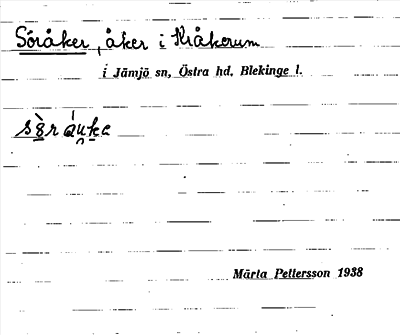 Söråker, åker i Kråkerum
i Jämjö sn, Östra hd, Blekinge l.
Märta Pettersson 1938